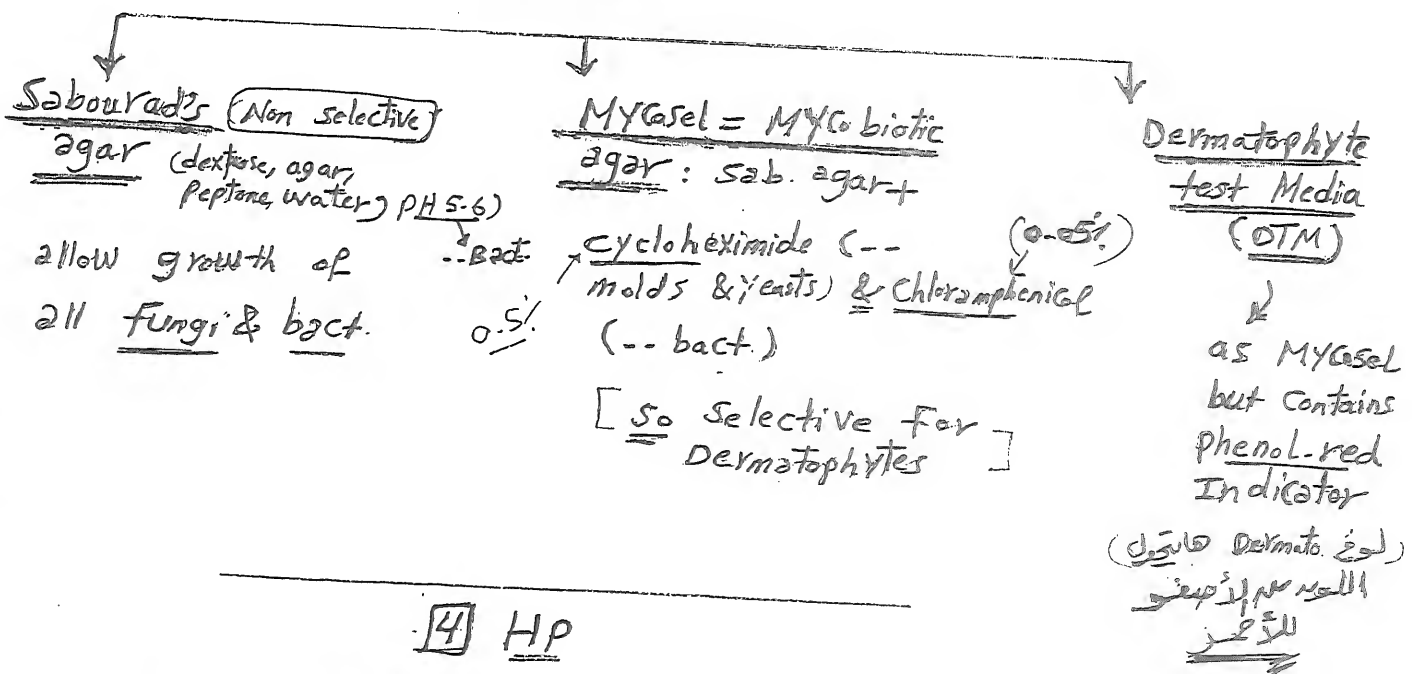 Sabourad's (Non selective)
agar (dextrose, agar,
Peptone, water, PH 5.6)
--Bact.
allow growth of
all Fungi & bact.
Mycosel = Myco biotic
agar : Sab. agar +
cycloheximide (-- (0.05%)
molds & yeasts) & Chloramphenical
0.5%
(-- bact.)
[So Selective For
Dermatophytes]
Dermatophyte
test Media
(DTM)
as Mycosel
but Contains
Phenol-red
Indicator
(لوفي Dermato. هايتحول
اللون من الأصفر
للأحمر
4 HP